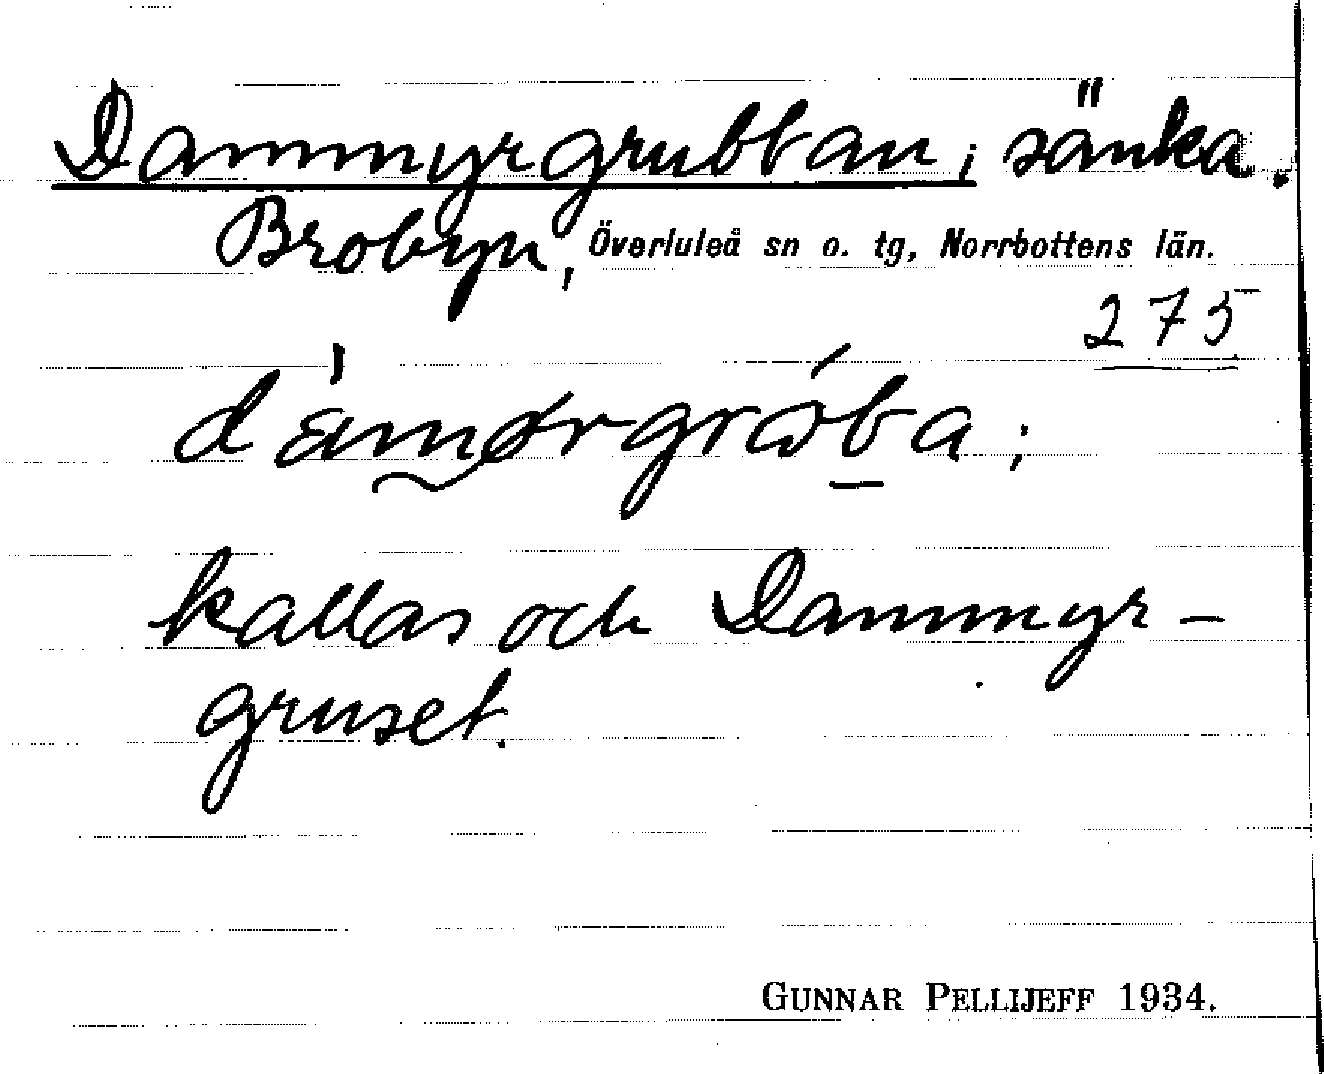 Dammyrgrubban; sänka.
Brobyn, Överluleå sn o. tg, Norrbottens län.
275
kallas och Dammyr-
gruset.
GUNNAR PELLIJEFF 1934.